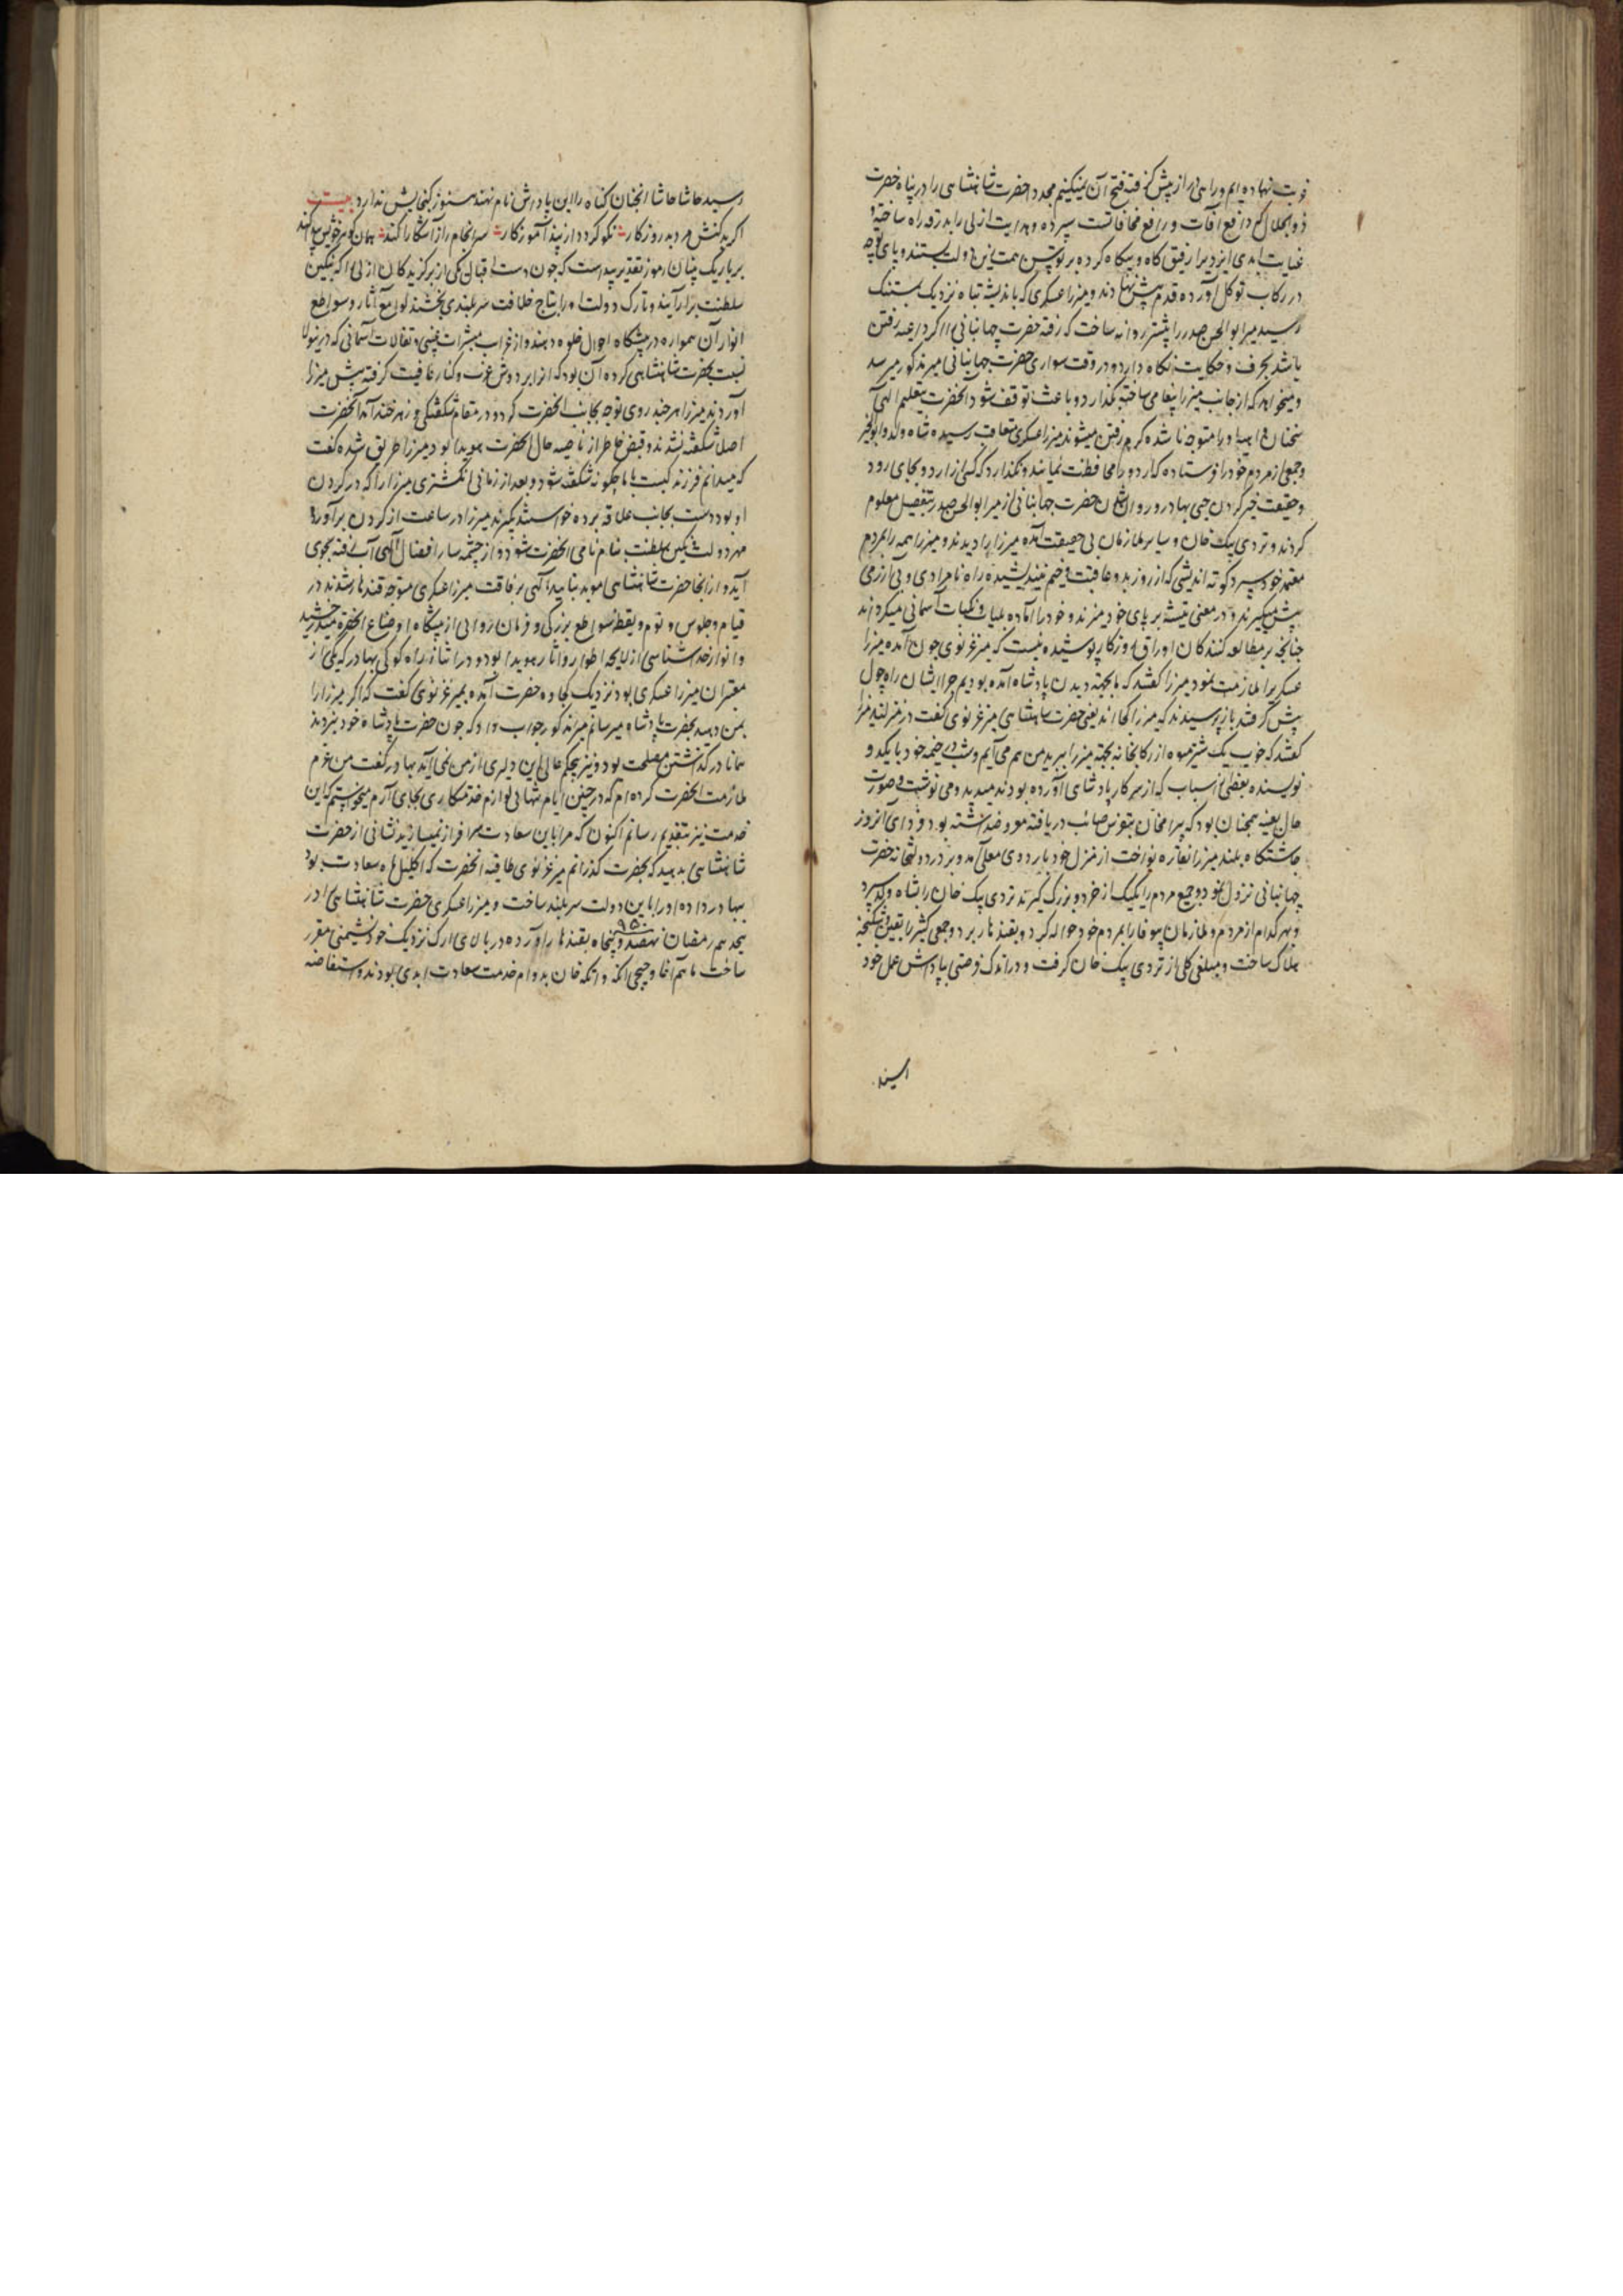 نوبت نهاده ایم و راهی را از پیش گرفته فتح آن میکنیم مجدد حضرت شاهنشاهی را در پناه حضرت
ذوالجلال که دافع آفات و رافع مخافاتست سپرده و هدایت ازلی را بدرقه راه ساخته و
عنایت ابدی ایزدی را رفیق گاه و بیگاه کرده بر توسن همت این دولت بستند و پای توجه
در رکاب توکل آورده قدم پیش نهادند و میرزا عسکری که باندیشه تباه نزدیک بمستنک
رسید میر ابوالحسن صدر را پیشتر روانه ساخت که رفته حضرت جهانبانی را اگر داعیه رفتن
باشد بحرف و حکایت نگاه دارد و در وقت سواری حضرت جهانبانی میر مذکور میرسد
و میخواهد که از جانب میرزا پیغامی ساخته بگذارد و باعث توقف شود آنحضرت بتعلیم الهی
سخنان واهی او را متوجه نا شده گرم رفتن میشوند میرزا عسکری متعاقب رسیده شاه ولد و ابوالخیر
و جمعی از مردم خود را فرستاده که اردو را محافظت نمایند و نگذارد که کسی از اردو بجای رود
و حقیقت خبر کردن جی بهادر و روان شدن حضرت جهانبانی از میر ابوالحسن صدر بتفصیل معلوم
کردند و تردی بیک خان و سایر ملازمان بی حقیقت آمده میرزا را دیدند و میرزا همه را بمردم
معتمد خود سپرد کوته اندیشی که از روز بد و عاقبت وخیم نیندیشیده راه نامرادی و بی آزرمی
پیش میگیرند و در معنی تیشه بر پای خود میزند و خود را آماده بلیات و نکبات آسمانی میگرداند
چنانچه بر مطالعه کنندگان اوراق روزگار پوشیده نیست که میر غزنوی چون آمده میرزا
عسکری را ملازمت نمود میرزا گفتند که ما بجهته دیدن پادشاه آمده بودیم چرا ایشان راه چول
پیش گرفتند باز پرسیدند که میرزا کجا اند یعنی حضرت شاهنشاهی میر غزنوی گفت در منزلند میرزا
گفتند که خوب یک شتر میوه از رکابخانه بجهته میرزا ببرید من هم می آیم و شب در خیمه خود با یک دو
نویسنده بعضی اسباب که از سرکار پادشاهی آورده بودند میدید و می نوشت و صورت
حال بعینه همچنان بود که بیرامخان بتفرس صائب دریافته معروضداشته بود و فردای آنروز
چاشتگاه بلند میرزا نقاره نواخت از منزل خود باردوی معلی آمد و بر در دولتخانه حضرت
جهانبانی نزول نمود و جمیع مردم را یک یک از خرد و بزرگ گیرند تردی بیک خان را بشاه ولد سپرد
و هر کدام از مردم و ملازمان بیوفا را بمردم خود حواله کرد و بقندهار برد و جمعی کثیر را بقین و شکنجه
هلاک ساخت و مبلغی کلی از تردی بیک خان گرفت و در اندک فرصتی بپاداش عمل خود
رسید حاشا حاشا آنچنان گناه را این پاداش نام نهند هنوز گنجایش ندارد بیت
اگر بد کنش مرد بد روزگار نگو گردد از پند آموزگار سرانجام راز آشکارا کند همان گوهر خویش پیدا کند
بر باریک بینان رموز تقدیر پیداست که چون دست اقبال یکی از برگزیدگان ازلی را که بنگین
سلطنت بر آرایند و تارک دولت او را بتاج خلافت سربلندی بخشند لوامع آثار و سواطع
انوار آن همواره در پیشگاه احوال جلوه دهند و از غرایب مبشرات غیبی و تفالات آسمانی که درینولا
نسبت بحضرت شاهنشاهی کرده آن بود که آنرا بر دوش عزت و کنار عافیت گرفته پیش میرزا
آوردند میرزا هر چند روی توجه بجانب آنحضرت کرد و در مقام شگفتگی و زهر خند آمد آنحضرت
اصلا شگفته نشدند و قبض خاطر از ناصیه حال آنحضرت هویدا بود میرزا از طریق شده گفت
که میدانم فرزند کیست با ما چگونه شگفته شود و بعد از زمانی انگشتری میرزا را که در گردن
او بود دست بجانب علاقه برده خواستند بگیرند میرزا در ساعت از گردن برآورده
مهر دولت نگین سلطنت بنام نامی آنحضرت شود و از چشمه سار افضال الهی آب رفته بجوی
آید و از آنجا حضرت شاهنشاهی موید بتایید الهی برفاقت میرزا عسکری متوجه قندهار شدند در
قیام و جلوس و نوم و یقظه سواطع بزرگی و فرمان روایی از پیشگاه اوضاع آنحضرت میدرخشید
و انوار خداشناسی از لایحه اطوار و آثار هویدا بود و در اثناء راه کوکی بهادر که یکی از
معتبران میرزا عسکری بود نزدیک کجاوه حضرت آمده بمیر غزنوی گفت که اگر میرزا را
بمن دهید بحضرت پادشاه میرسانم میر مذکور جواب داد که چون حضرت پادشاه خود نبردند
همانا در گذاشتن مصلحت بود و نیز بحکم عالی این دلیری از من نمی آید بهادر گفت من عزم
ملازمت آنحضرت کرده ام که در چنین ایام تنهایی لوازم خدمتکاری بجای آرم میخواستم که این
خدمت نیز بتقدیم رسانم اکنون که مرا باین سعادت سرافراز نمیسازید نشانی از حضرت
شاهنشاهی بدهید که بحضرت گذرانم میر غزنوی طاقیه آنحضرت که اکلیل ماه سعادت بود
بهادر داده او را باین دولت سربلند ساخت و میرزا عسکری حضرت شاهنشاهی را در
هیجدهم رمضان نهصد و پنجاه ۹۵۰ بقندهار آورده در بالای ارک نزدیک خود نشیمنی مقرر
ساخت ماهم آغا و جیجی انکه و اتکه خان بدوام خدمت سعادت ابدی بودند و استفاضه